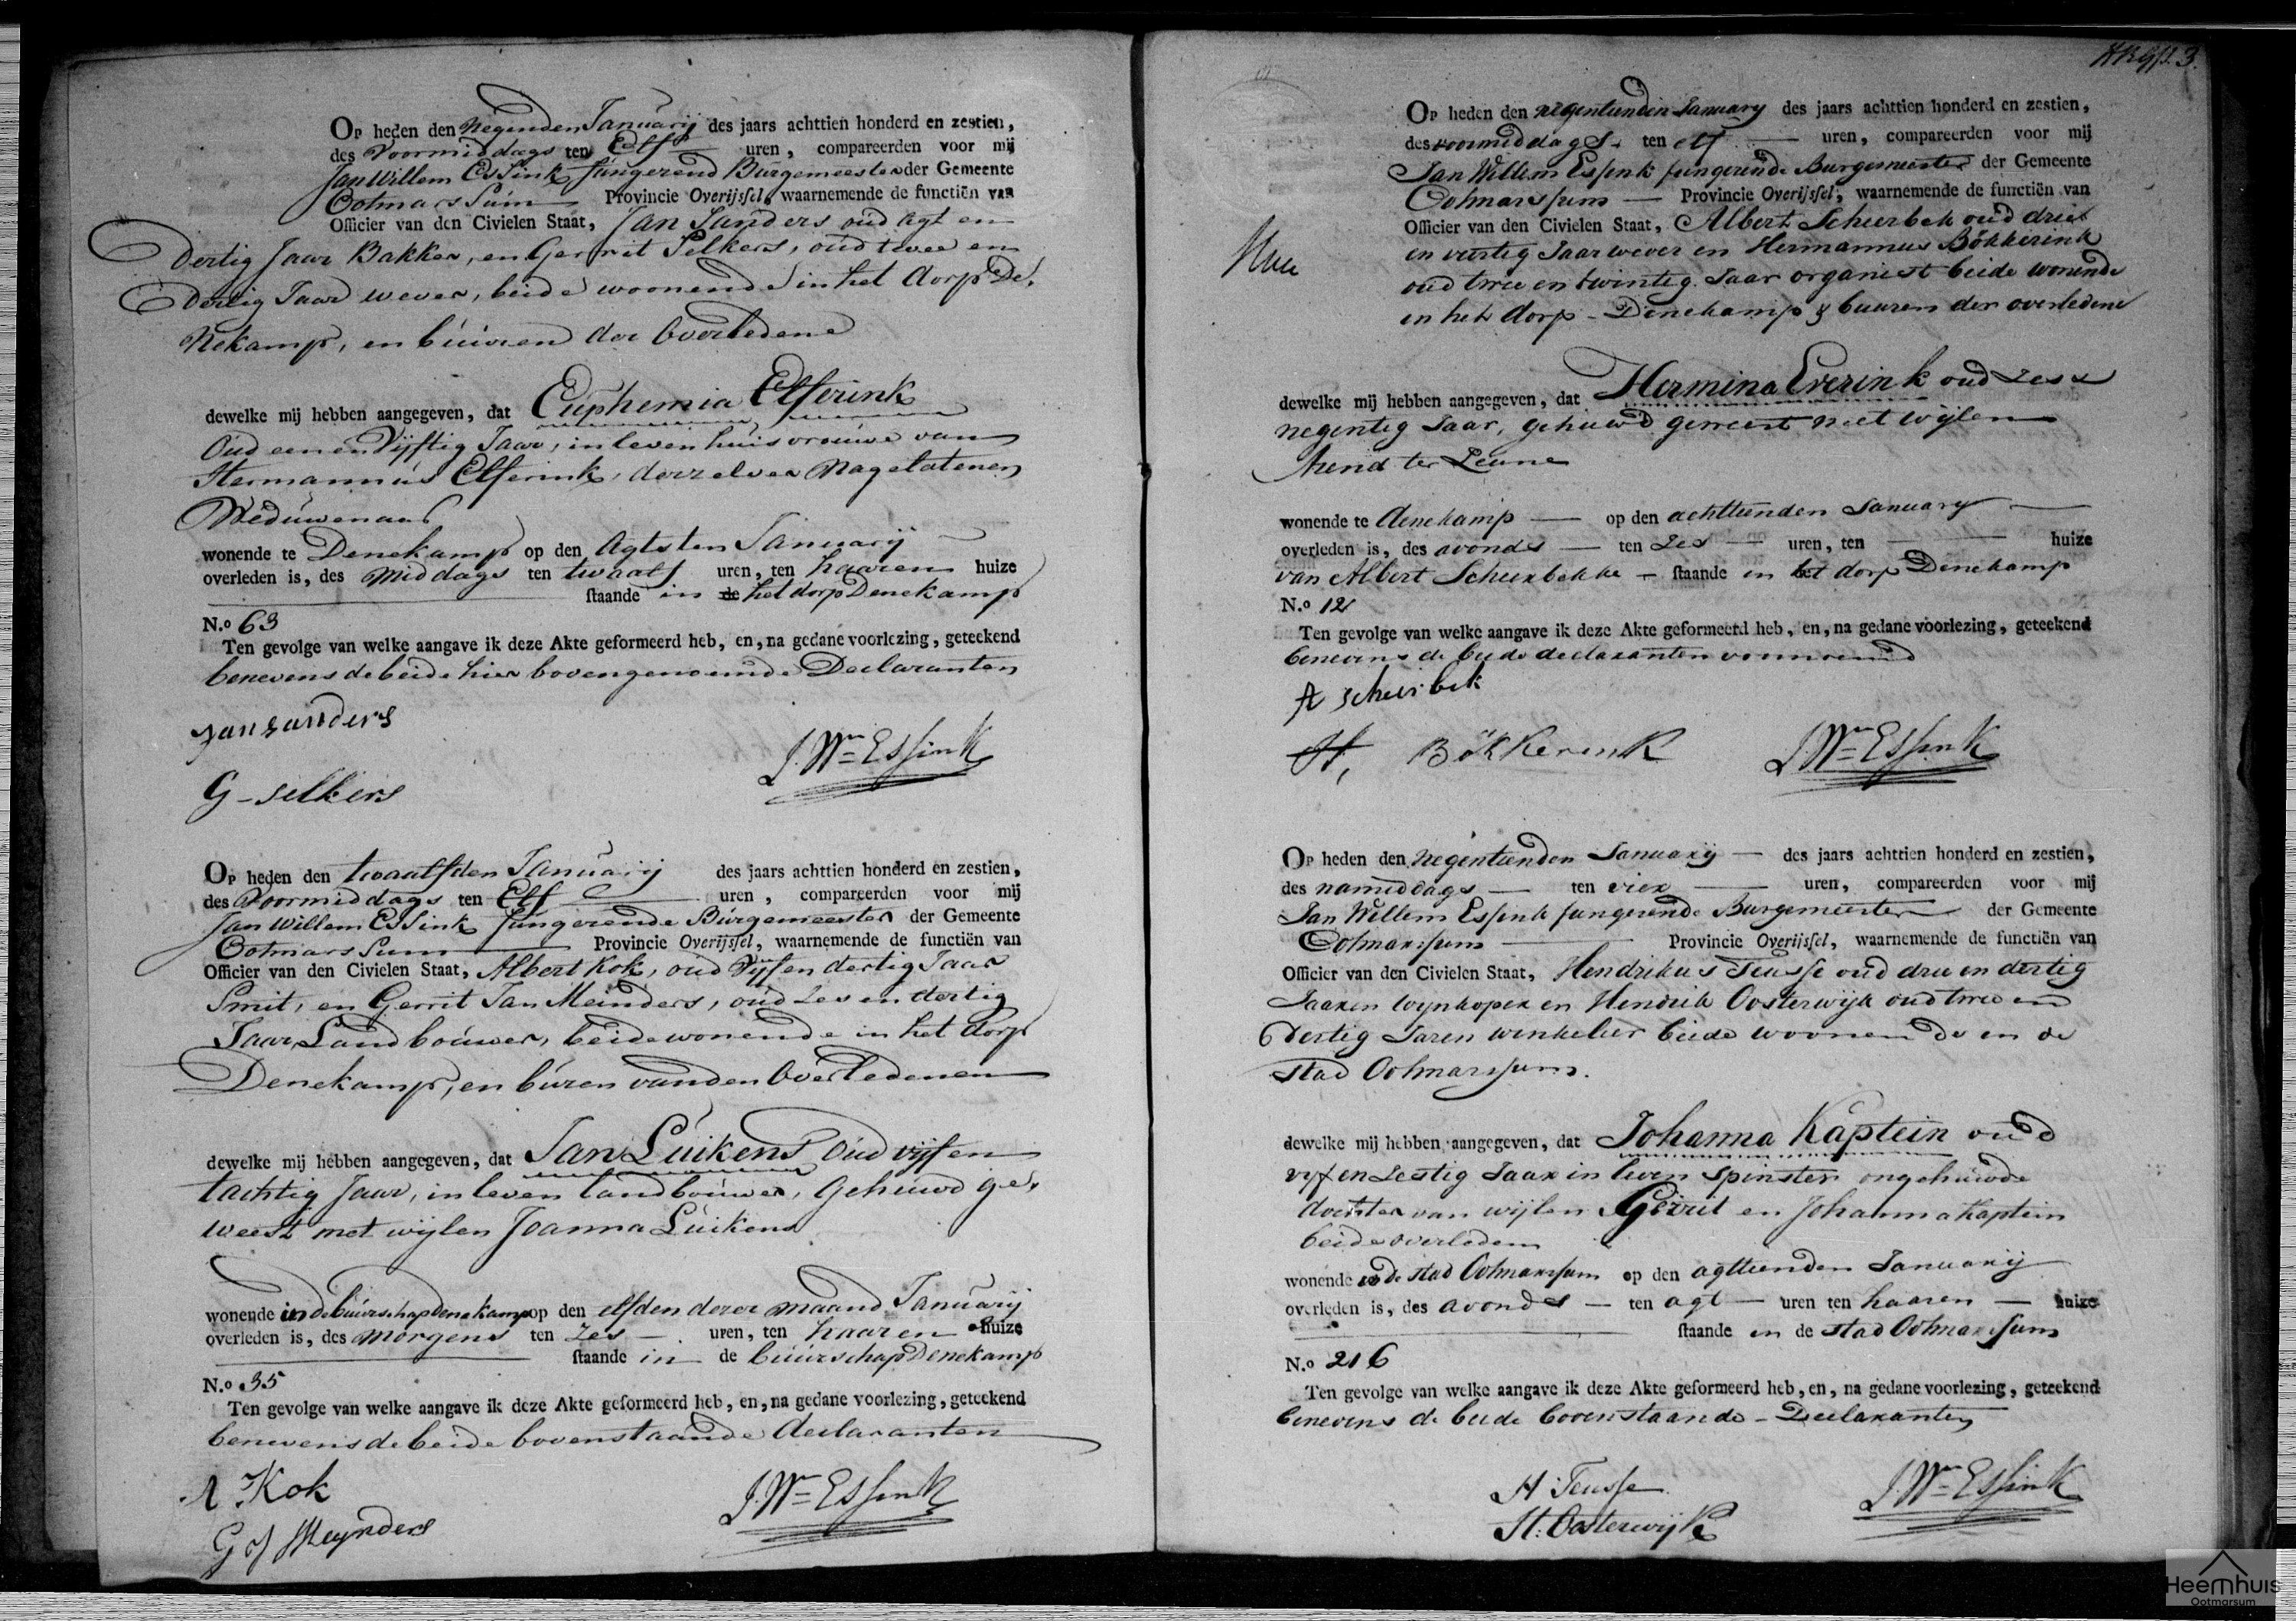 Op heden den Negenden Januarij des jaars achttien honderd en zestien,
des Voormiddags ten Elf uren, compareerden voor mij
Jan Willem Essink fungerend Burgemeester der Gemeente
Ootmarssum Provincie Overijssel, waarnemende de functiën van
Officier van den Civielen Staat, Jan Sanders oud agt en
Dertig Jaar Bakker, en Gerrit Selkers, oud twee en
Dertig Jaar wever, beide woonende in het dorp De,
Nekamp, en buuren der Overledene
dewelke mij hebben aangegeven, dat Euphemia Elferink
Oud een en Vijftig Jaar, in leven huisvrouwe van
Hermannus Elferink, derzelver Nagelatenen
Weduwenaar
wonende te Denekamp op den Agtsten Januarij
overleden is, des Middags ten twaalf uren, ten haaren huize
staande in de het dorp Denekamp
N.o 63
Ten gevolge van welke aangave ik deze Akte geformeerd heb, en, na gedane voorlezing, geteekend
benevens de beide hier bovengenoemde Declaranten
Jan sanders
J. Wm Essink
G - selkers
Op heden den twaalfden Januarij des jaars achttien honderd en zestien,
des Voormiddags ten Elf uren, compareerden voor mij
Jan Willem Essink fungerende Burgemeester der Gemeente
Ootmarssum Provincie Overijssel, waarnemende de functiën van
Officier van den Civielen Staat, Albert Kok, oud Vijf en dertig Jaar
Smit, en Gerrit Jan Meinders, oud zes en dertig
Jaar, Landbouwer, beide wonende in het dorp
Denekamp, en buren van den Overledenen
dewelke mij hebben aangegeven, dat Jan Luikens Oud vijf en
tachtig Jaar, in leven landbouwer, Gehuwd ge,
weest met wijlen Joanna Luikens
wonende in de buurschap Denekamp op den elfden dezer maand Januarij
overleden is, des Morgens ten Zes uren, ten haaren huize
staande in de buurschap Denekamp
N.o 35
Ten gevolge van welke aangave ik deze Akte geformeerd heb, en, na gedane voorlezing, geteekend
benevens de beide bovenstaande declaranten
A Kok
J. Wm Essink
G J Meynders
3.
Op heden den negentienden January des jaars achttien honderd en zestien,
des voormiddags ten elf uren, compareerden voor mij
Jan Willem Essink fungerende Burgemeester der Gemeente
Ootmarssum Provincie Overijssel, waarnemende de functiën van
Officier van den Civielen Staat, Albert Scheerbek oud drie
en veertig Jaar wever en Hermannus Bökkerink
oud twee en twintig Jaar organist beide wonende
in het dorp Denekamp & buuren der overledene
dewelke mij hebben aangegeven, dat Hermina Everink oud zes &
negentig Jaar, gehuwd geweest met wijlen
Arend ter Leune
wonende te Denekamp op den achttienden January
overleden is, des avonds ten Zes uren, ten huize
van Albert Scheerbekke staande in het dorp Denekamp
N.o 12
Ten gevolge van welke aangave ik deze Akte geformeerd heb, en, na gedane voorlezing, geteekend
benevens de beide declaranten voornoemd
A scheirbek
H, Bökkerink
J. Wm Essink
Op heden den negentienden Januarij des jaars achttien honderd en zestien,
des namiddags ten vier uren, compareerden voor mij
Jan Willem Essink fungerende Burgemeester der Gemeente
Ootmarssum Provincie Overijssel, waarnemende de functiën van
Officier van den Civielen Staat, Hendrikus Teusse oud drie en dertig
Jaaren wynkoper en Hendrik Oosterwijk oud twee en
dertig Jaren winkelier beide woonende in de
stad Ootmarssum.
dewelke mij hebben aangegeven, dat Johanna Kaptein oud
vyf en Zestig Jaar in leven spinster ongehuwde
dochter van wijlen Gerrit en Johanna Kaptein
beide overleden
wonende in de stad Ootmarssum op den agttienden Januarij
overleden is, des avonds ten agt uren ten haaren huize
staande in de stad Ootmarssum
N.o 216
Ten gevolge van welke aangave ik deze Akte geformeerd heb, en, na gedane voorlezing, geteekend
benevens de beide bovenstaande Declaranten
H: Teusse
J. Wm Essink
H: Oosterwijk
Heemhuis
Ootmarsum